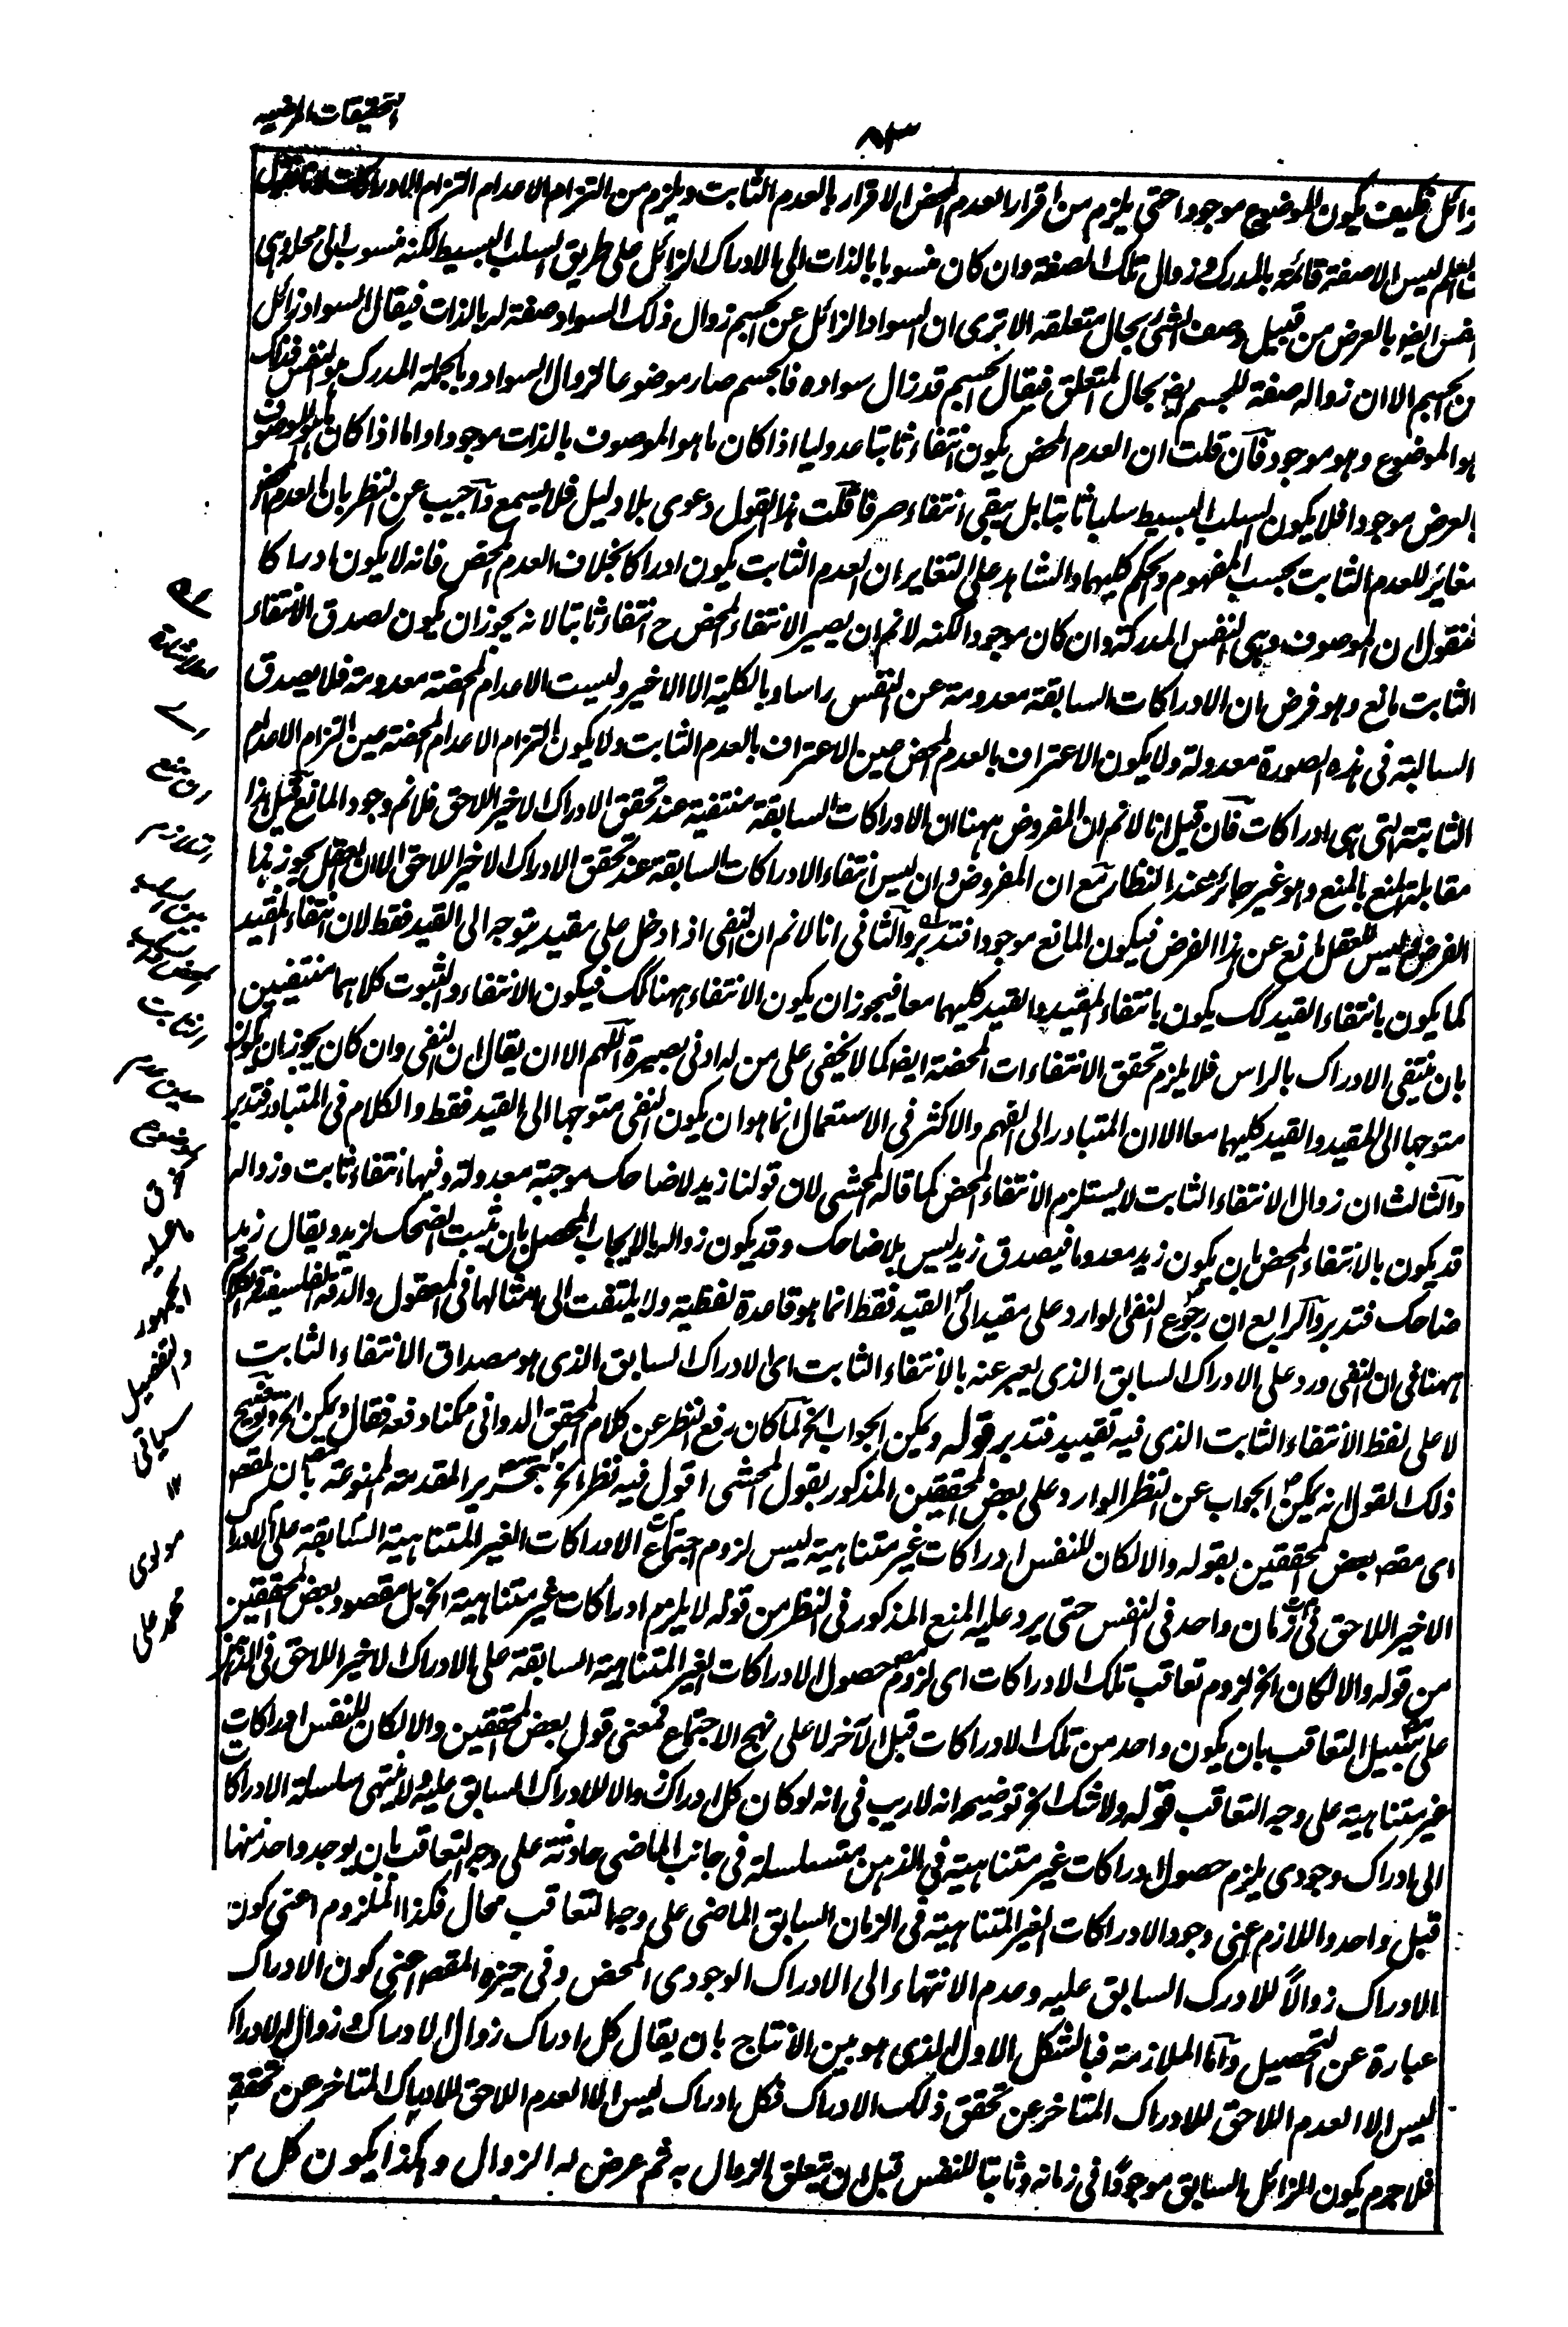 التحقيقات المرضية
٨٣
زائل فكيف يكون الموضوع موجودا حتى يلزم من اقرار العدم المحض الاقرار بالعدم الثابت ويلزم من التزام الاعدام التزام الادراكات
العلم ليس الا صفة قائمة بالمدرك وزوال تلك الصفة وان كان منسوبا بالذات الى الادراك الزائل على طريق السلب البسيط لكنه منسوب الى محله وهى
النفس ايضو بالعرض من قبيل وصف الشئ بحال متعلقه الا ترى ان السواد الزائل عن الجسم زوال ذلك السواد صفة له بالذات فيقال السواد زائل
عن الجسم الا ان زواله صفة للجسم ايضو بحال المتعلق فيقال الجسم قد زال سواده فالجسم صار موضوعا لزوال السواد وبالجملة المدرك هو النفس
هو الموضوع وهو موجود فان قلت ان العدم المحض يكون انتفاء ثابتا عدوليا اذا كان ما هو الموصوف بالذات موجودا واما اذا كان ما هو الموصوف
بالعرض موجودا فلا يكون السلب البسيط سلبا ثابتا بل يبقى انتفاء صرفا قلت هذا القول دعوى بلا دليل فلا يسمع واجيب عن النظر بان العدم المحض
مغائر للعدم الثابت بحسب المفهوم والحكم كليهما والشاهد على التغاير ان العدم الثابت يكون ادراكا بخلاف العدم المحض فانه لا يكون ادراكا
فنقول ان الموصوف وهى النفس المدركة وان كان موجودا لكنه لا نم ان يصير الانتفاء المحض ح انتفاء ثابتا لانه يجوز ان يكون لصدق الانتفاء
الثابت مانع وهو فرض ان الادراكات السابقة معدومة عن النفس راسا وبالكلية الا الاخير وليست الاعدام المحضة معدومة فلا يصدق
السالبة فى هذه الصورة معدولة ولا يكون الاعتراف بالعدم المحض عين الاعتراف بالعدم الثابت ولا يكون التزام الاعدام المحضة عين التزام الاعدام
الثابتة التى هى ادراكات فان قيل انا لا نم ان المفروض ههنا ان الادراكات السابقة منتفية عند تحقق الادراك الاخير اللاحق فلا نم وجود المانع قيل هذا
مقابلة المنع بالمنع وهو غير جائز عند النظار مع ان المفروض وان ليس انتفاء الادراكات السابقة عند تحقق الادراك الاخير اللاحق الا ان العقل يجوز هذا
الفرض وليس للعقل مانع عن هذا الفرض فيكون المانع موجودا فتدبر والثانى انا لا نم ان النفى اذا دخل على مقيد يتوجه الى القيد فقط لان انتفاء المقيد
كما يكون بانتفاء القيد كك يكون بانتفاء المقيد والقيد كليهما معا فيجوز ان يكون الانتفاء ههنا كك فيكون الانتفاء والثبوت كلاهما منتفيين
بان ينتفى الادراك بالراس فلا يلزم تحقق الانتفاءات المحضة ايضو كما لا يخفى على من له ادنى بصيرة اللهم الا ان يقال ان النفى وان كان يجوز ان يكون
متوجها الى المقيد والقيد كليهما معا الا ان المتبادر الى الفهم والاكثر فى الاستعمال انما هو ان يكون النفى متوجها الى القيد فقط والكلام فى المتبادر فتدبر
والثالث ان زوال الانتفاء الثابت لا يستلزم الانتفاء المحض كما قاله المحشى لان قولنا زيد لا ضاحك موجبة معدولة وفيها انتفاء ثابت وزواله
قد يكون بالانتفاء المحض بان يكون زيد معدوما فيصدق زيد ليس بلا ضاحك وقد يكون زواله بالايجاب المحصل بان يثبت الضحك لزيد ويقال زيد
ضاحك فتدبر والرابع ان رجوع النفى الوارد على مقيد الى القيد فقط انما هو قاعدة لفظية ولا يلتفت الى امثالها فى المعقول والدقة الفلسفية الكلام
ههنا فى ان النفى ورد على الادراك السابق الذى يعبر عنه بالانتفاء الثابت اى الادراك السابق الذى هو مصداق الانتفاء الثابت
لا على لفظ الانتفاء الثابت الذى فيه تقييد فتدبر قوله ويمكن الجواب الخ لما كان رفع النظر عن كلام المحقق الدوانى ممكنا دفعه فقال ويمكن الخ وتوضيح
ذلك القول انه يمكن الجواب عن النظر الوارد على بعض المحققين المذكور بقول المحشى اقول فيه نظر الخ بتحرير المقدمة الممنوعة بان المقصو
اى مقصو بعض المحققين بقوله والا لكان للنفس ادراكات غير متناهية ليس لزوم اجتماع الادراكات الغير المتناهية السابقة على الادراك
الاخير اللاحق فى زمان واحد فى النفس حتى يرد عليه المنع المذكور فى النظر من قوله لا يلزم ادراكات غير متناهية الخ بل مقصود بعض المحققين
من قوله والا لكان الخ لزوم تعاقب تلك الادراكات اى لزوم حصول الادراكات الغير المتناهية السابقة على الادراك الاخير اللاحق فى
على سبيل التعاقب بان يكون واحد من تلك الادراكات قبل الآخر لا على نهج الاجتماع فمعنى قول بعض المحققين والا لكان للنفس ادراكات
غير متناهية على وجه التعاقب قوله ولا شك الخ توضيحه انه لا ريب فى انه لو كان كل ادراك زوالا للادراك السابق عليه ولا ينتهى سلسلة الادراكات
الى ادراك وجودى يلزم حصول ادراكات غير متناهية فى الذهن متسلسلة فى جانب الماضى حادثة على وجه التعاقب بان يوجد واحد منها
قبل واحد واللازم اعنى وجود الادراكات الغير المتناهية فى الزمان السابق الماضى على وجه التعاقب محال فكذا الملزوم اعنى كون
الادراك زوالاً للادرك السابق عليه وعدم الانتهاء الى الادراك الوجودى المحض وفى حيزه المقصو اعنى كون الادراك
عبارة عن التحصيل واما الملازمة فبالشكل الاول الذى هو بين الانتاج بان يقال كل ادراك زوال الادراك وزوال الادراك
ليس الا العدم اللاحق للادراك المتاخر عن تحقق ذلك الادراك فكل ادراك ليس الا العدم اللاحق للادراك المتاخر عن تحققه
فلا جرم يكون الزائل السابق موجودًا فى زمانه وثابتا للنفس قبل ان يتعلق الزوال به ثم عرض له الزوال وهكذا يكون كل من
له
اشارة
الى
ان منع
التلازم
بين السلب
والثابت
حين عدم
الموضوع
ما عليه
الجمهور
والتفصيل
سياتى
١٢
مولوى
محمد على